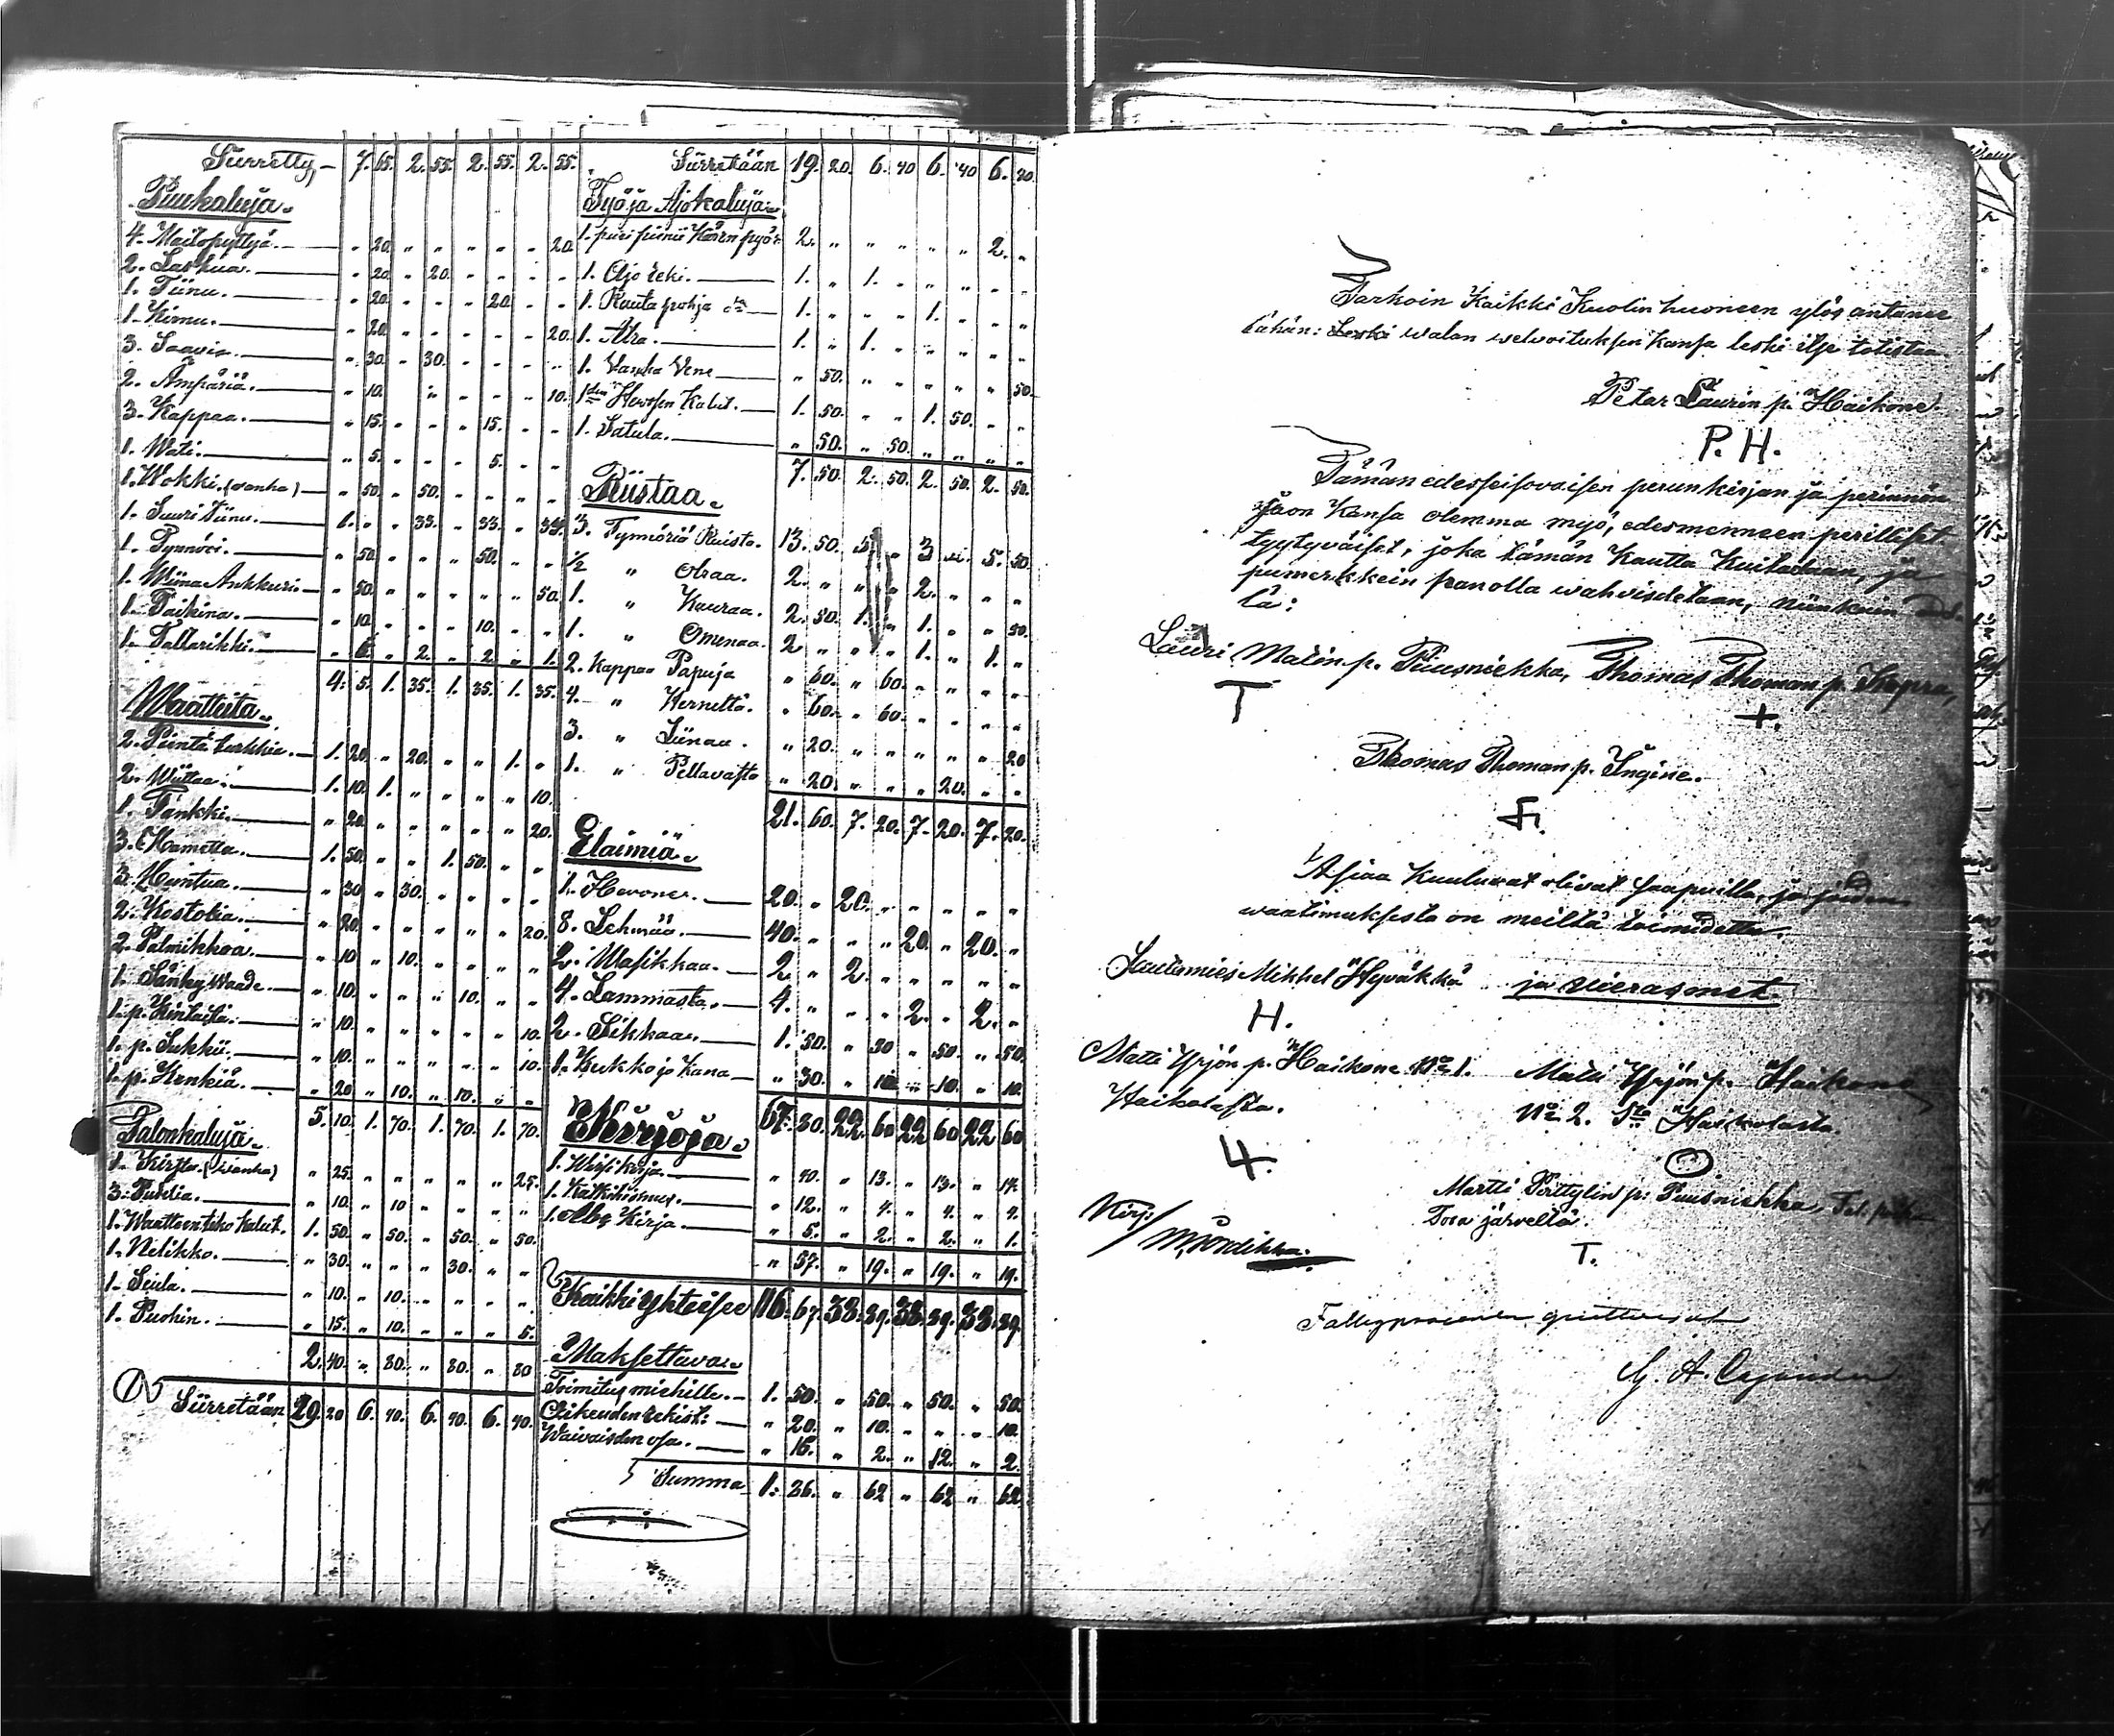 Siirretty, — 7. 15. 2. 55. 2. 55. 2. 55.
Puukaluja.
4. Maitopyttyä. — „ 20. „ „ „ „ „ 20.
2. Saskua. — „ 20. „ 20. „ „ „ „
1. Tiinu. — „ 20. „ „ „ 20. „ „
1. Kirnu. — „ 20. „ „ „ „ „ 20.
3. Saavia. — „ 30. „ 30. „ „ „ „
2. Ämpäriä. — „ 10. „ „ „ „ „ 10.
3. Kappaa. — „ 15. „ „ „ 15. „ „
1. Wati. — „ 5. „ „ „ 5. „ „
1. Wokki. (vanha) — „ 50. „ 50. „ „ „ „
1. Suuri tiinu. — 1. „ „ 33. „ 33. „ 34.
1. Pynnöri. — „ 50. „ „ „ 50. „ „
1. Wiina Ankkuri. — „ 50. „ „ „ „ „ 50.
1. Taikina. — „ 10. „ „ „ 10. „ „
1. Tallarikki. — „ 5. „ 2. „ 2. „ 1.
4. 5. 1. 35. 1. 35. 1. 35.
Waatteita.
2. Pientä turkkia. — 1. 20. „ 20. „ „ 1. „
2. Wiittaa. — 1. 10. 1. „ „ „ „ 10.
1. Tänkki. — „ 20. „ „ „ „ „ 20.
3. Hametta. — 1. 50. „ „ 1. 50. „ „
3. Huntua. — „ 30. „ 30. „ „ „ „
2. Kostolia. — „ 20. „ „ „ „ „ 20.
2. Palmikkoa. — „ 10. „ 10. „ „ „ „
1. Sänky Waade. — „ 10. „ „ „ 10. „ „
1. p. Kintaita. — „ 10. „ „ „ „ „ 10.
1. p. Sukkii. — „ 10. „ „ „ „ „ 10.
1. p. Kenkiä. — „ 20. „ 10. „ 10. „ „
5. 10. 1. 70. 1. 70. 1. 70.
Talonkaluja.
1. Kirstu. (wanha) „ 25. „ „ „ „ „ 25.
3. Puntia. — „ 10. „ 10 „ „ „ „
1. Waatteen teko kalut. 1. 50. „ 50. „ 50. „ 50.
1. Nelikko. — „ 30. „ „ „ 30. „ „
1. Seula. — „ 10. „ 10. „ „ „ „
1. Puohin. — „ 15. „ 10. „ „ „ 5.
2. 40. „ 80. „ 80. „ 80
Siirretään 19. 20 6. 40. 6. 40. 6. 40.
Siirretään 19. 20. 6. 40 6. 40 6. 40.
Työ ja Ajokaluja.
1. pari pienii Kären pyör. 2. „ „ „ „ „ 2. „
1. Ajo reki. — 1. „ 1. „ „ „ „ „
1. Rauta pohja dito — 1. „ „ „ 1. „ „ „
1. Atra. — 1. „ 1. „ „ „ „ „
1. Vanha Vene — „ 50. „ „ „ „ „ 50.
1den Hevosen Kalut. — 1. 50. „ „ 1. 50. „ „
1. Satula. — „ 50. „ 50. „ „ „ „
7. 50. 2. 50. 2. 50. 2. 50.
Riistaa.
3. Tynnöriä Ruista. 13. 50. 5. „ 3. „ 5. 50.
1/2 „ Otraa. 2. „ „ „ 2. „ „ „
1. „ Kauraa. 2. 50. 1. „ 1. „ „ 50.
1. „ Omenaa. 2. „ „ „ 1. „ 1. „
2. Kappaa Papuja „ 60. „ 60. „ „ „ „
4. „ Hernettä. „ 60. „ 60. „ „ „ „
3. „ Liinaa. „ 20. „ „ „ „ „ 20
1. „ Pellavasta „ 20. „ „ „ 20. „ „
21. 60. 7. 20. 7. 20. 7. 20.
Elaimiä.
1. Hevonen. — 20. „ 20. „ „ „ „ „
8. Lehmää. — 40. „ „ „ 20. „ 20. „
2. Wasikkaa. — 2. „ 2. „ „ „ „ „
4. Lammasta. — 4. „ „ „ 2. „ 2. „
2. Sikkaa. — 1. 50. „ 50 „ 50. „ 50.
1. Kukko ja Kana — „ 30. „ 10. „ 10. „ 10.
67. 80. 22. 60 22 60 22 60
Kirjoja.
1. Wirsikirja. — „ 40. „ 13. „ 13. „ 14.
1. Katkihismus. — „ 12. „ 4. „ 4. „ 4.
1. Abc Kirja. — „ 5. „ 2. „ 2. „ 1.
„ 57. „ 19. „ 19. „ 19.
Kaikki yhteisee 116. 67. 38. 89. 38. 89. 38. 89.
Maksettavaa
Toimitus miehille. — 1. 50. „ 50. „ 50. „ 50.
Oikeuden rekist: — „ 20. „ 10. „ „ „ 10.
Waivaisden osa. — „ 16. „ 2. „ 12. „ 2.
Summa 1. 86. „ 62 „ 62 „ 62
Tarkoin Kaikki Kuolin huoneen ylös antanee
tähän: Leski walan welvoituksen kansa leski itse totistaa
Petar Laurin p. Haikone.
P. H.
Tämän edesseisovaisen perunkirjan ja perinnön
jaon Kansa olemma myö, edesmenneen perilliset
tyytyväiset, joka tämän Kautta Kuitataan, ja
pumerkkein panolla wahvisdetaan, niinkuin
tä:
Lauri Matin p. Puusniekka, Thomas Thoman p. Kopra,
T +.
Thomas Thoman p. Ingine.
Asiaa Kuuluvat olivat saapuilla, ja joiden
waatimuksesta on meiltä toimidettu.
Lautamies Mikkel Hyväkkä ja vierasmet.
H.
Matti Yrjön p. Haikone No 1. Matti Yrjön p. Haikone
Haikolasta. No 2. Sta Haikolasta.
4. O.
Martti Pärttylin p: Puusniekka Tal. poika
Tora järveltä.
T.
Kirj.
Fattigprocenten qvitteras
G. A. Cajander